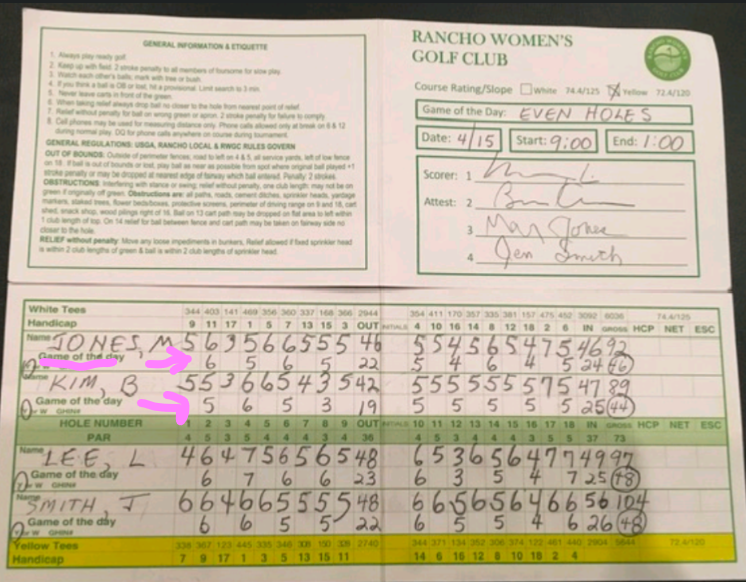 GENERAL INFORMATION & ETIQUETTE
1. Always play ready golf.
2. Keep up with field. 2 stroke penalty to all members of foursome for slow play.
3. Watch each other's balls; mark with tree or bush.
4. If you think a ball is OB or lost, hit a provisional. Limit search to 3 min.
5. Never leave carts in front of the green.
6. When taking relief always drop ball no closer to the hole from nearest point of relief.
7. Relief without penalty for ball on wrong green or apron. 2 stroke penalty for failure to comply.
8. Cell phones may be used for measuring distance only. Phone calls allowed only at break on 6 & 12
during normal play. DQ for phone calls anywhere on course during tournament.
GENERAL REGULATIONS: USGA, RANCHO LOCAL & RWGC RULES GOVERN
OUT OF BOUNDS: Outside of perimeter fences; road to left on 4 & 5, all service yards, left of low fence
on 18. If ball is out of bounds or lost, play ball as near as possible from spot where original ball played +1
stroke penalty or may be dropped at nearest edge of fairway which ball entered. Penalty: 2 strokes.
OBSTRUCTIONS: Interfering with stance or swing; relief without penalty, one club length; may not be on
green if originally off green. Obstructions are: all paths, roads, cement ditches, sprinkler heads, yardage
markers, staked trees, flower beds/boxes, protective screens, perimeter of driving range on 9 and 18, cart
shed, snack shop, wood pilings right of 16. Ball on 13 cart path may be dropped on flat area to left within
1 club length of top. On 14 relief for ball between fence and cart path may be taken on fairway side no
closer to the hole.
RELIEF without penalty: Move any loose impediments in bunkers, Relief allowed if fixed sprinkler head
is within 2 club lengths of green & ball is within 2 club lengths of sprinkler head.
RANCHO WOMEN'S
GOLF CLUB
Course Rating/Slope White 74.4/125 X Yellow 72.4/120
Game of the Day: EVEN HOLES
Date: 4/15 Start: 9:00 End: 1:00
Scorer: 1
Attest: 2
3 May Jones
4 Jen Smith
White Tees 344 403 141 469 356 360 337 168 366 2944 354 411 170 357 335 381 157 475 452 3092 6036 74.4/125
Handicap 9 11 17 1 5 7 13 15 3 OUT INITIALS 4 10 16 14 8 12 18 2 6 IN GROSS HCP NET ESC
Name JONES, M 5 6 3 5 6 6 5 5 5 46 5 5 4 5 6 5 4 7 5 46 92
Game of the day 6 5 6 5 22 5 4 6 4 5 24 46
Y or W GHIN#
Name KIM, B 5 5 3 6 6 5 4 3 5 42 5 5 5 5 5 5 5 7 5 47 89
Game of the day 5 6 5 3 19 5 5 5 5 5 25 44
Y or W GHIN#
HOLE NUMBER 1 2 3 4 5 6 7 8 9 OUT INITIALS 10 11 12 13 14 15 16 17 18 IN GROSS HCP NET ESC
PAR 4 5 3 5 4 4 4 3 4 36 4 5 3 4 4 4 3 5 5 37 73
Name LEE, L 4 6 4 7 5 6 5 6 5 48 6 5 3 6 5 6 4 7 7 49 97
Game of the day 6 7 6 6 23 6 3 5 4 7 25 48
Y or W GHIN#
Name SMITH, J 6 6 4 6 6 5 5 5 5 48 6 6 5 6 5 6 4 6 6 56 104
Game of the day 6 6 5 5 22 6 5 5 4 6 26 48
Y or W GHIN#
Yellow Tees 338 367 123 445 335 346 308 150 328 2740 344 371 134 352 306 374 122 461 440 2904 5644 72.4/120
Handicap 7 9 17 1 3 5 13 15 11 14 6 16 12 8 10 18 2 4